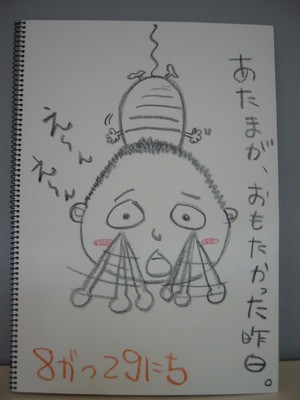 あたまが、おもたかった昨日。
え〜ん
え〜ん
8がつ29にち